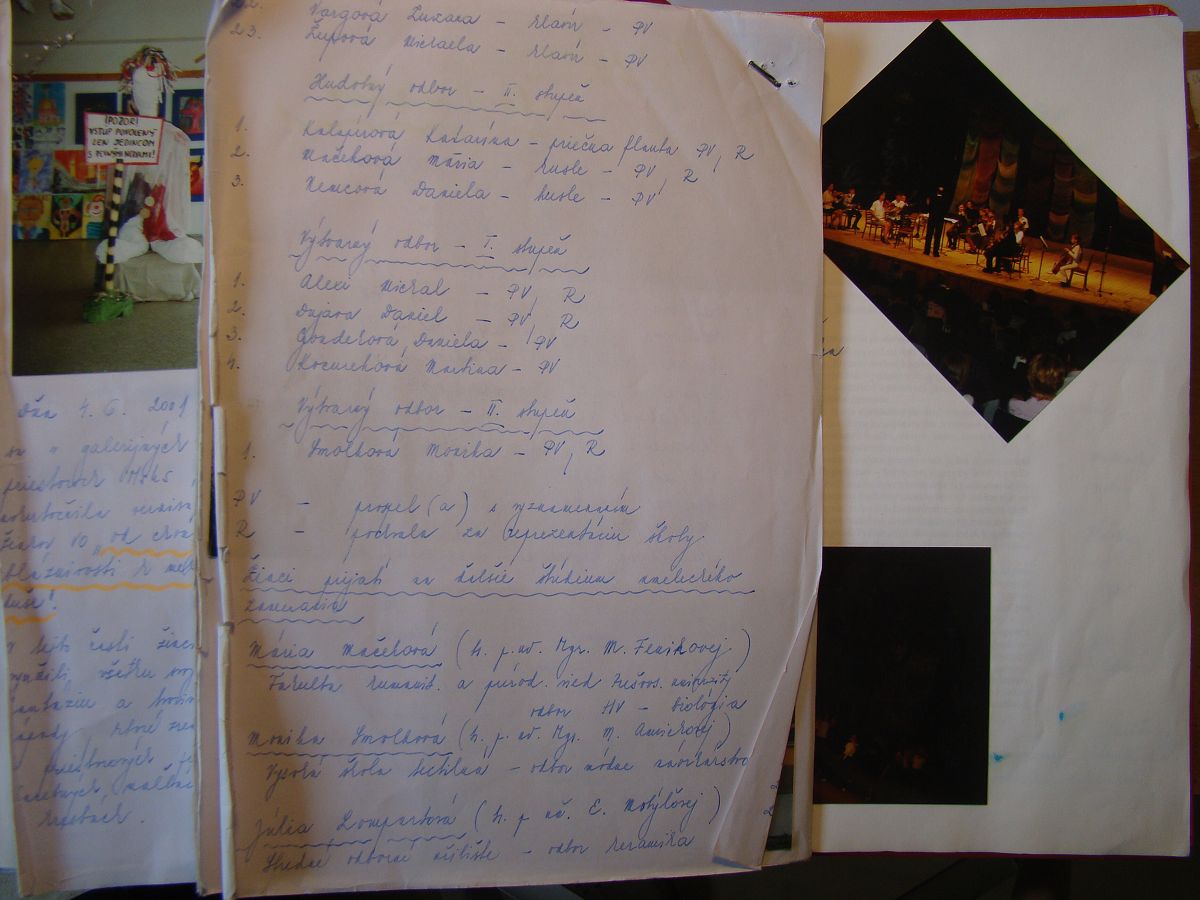 22. Vargová Zuzana - klavír - PV
23. Župová Michaela - klavír - PV
Hudobný odbor - II. stupeň
1. Kalapirová Katarína - priečna flauta PV, R
2. Mačeková Mária - husle - PV, R
3. Nemcová Daniela - husle - PV
Výtvarný odbor - I. stupeň
1. Alexi Michal - PV, R
2. Dujava Daniel - PV, R
3. Gondeková Daniela - PV
4. Kocureková Martina - PV
Výtvarný odbor - II. stupeň
1. Smolková Monika - PV, R
PV - prospel(a) s vyznamenaním
R - pochvala za reprezentáciu školy
Žiaci prijatí na ďalšie štúdium umeleckého
zamerania
Mária Mačeková (h. p. uč. Mgr. M. Fenikovej)
Fakulta humanit. a prírod. vied Prešovs. univerzity
odbor HV - biológia
Monika Smolková (h. p. uč. Mgr. M.
Vysoká škola textilná - odbor módne návrhárstvo
Júlia (h. p. uč. E. Motýľovej)
Stredné odborné učilište - odbor keramika
!POZOR!
VSTUP POVOLENÝ
LEN JEDINCOM
S PEVNÝMI NERVAMI!
Dňa 4. 6. 2001
sa v galerijných
priestoroch
žiakov VO "od
bláznivosti k
duše!
V tejto časti žiaci
využili všetku svoj
fantáziu a